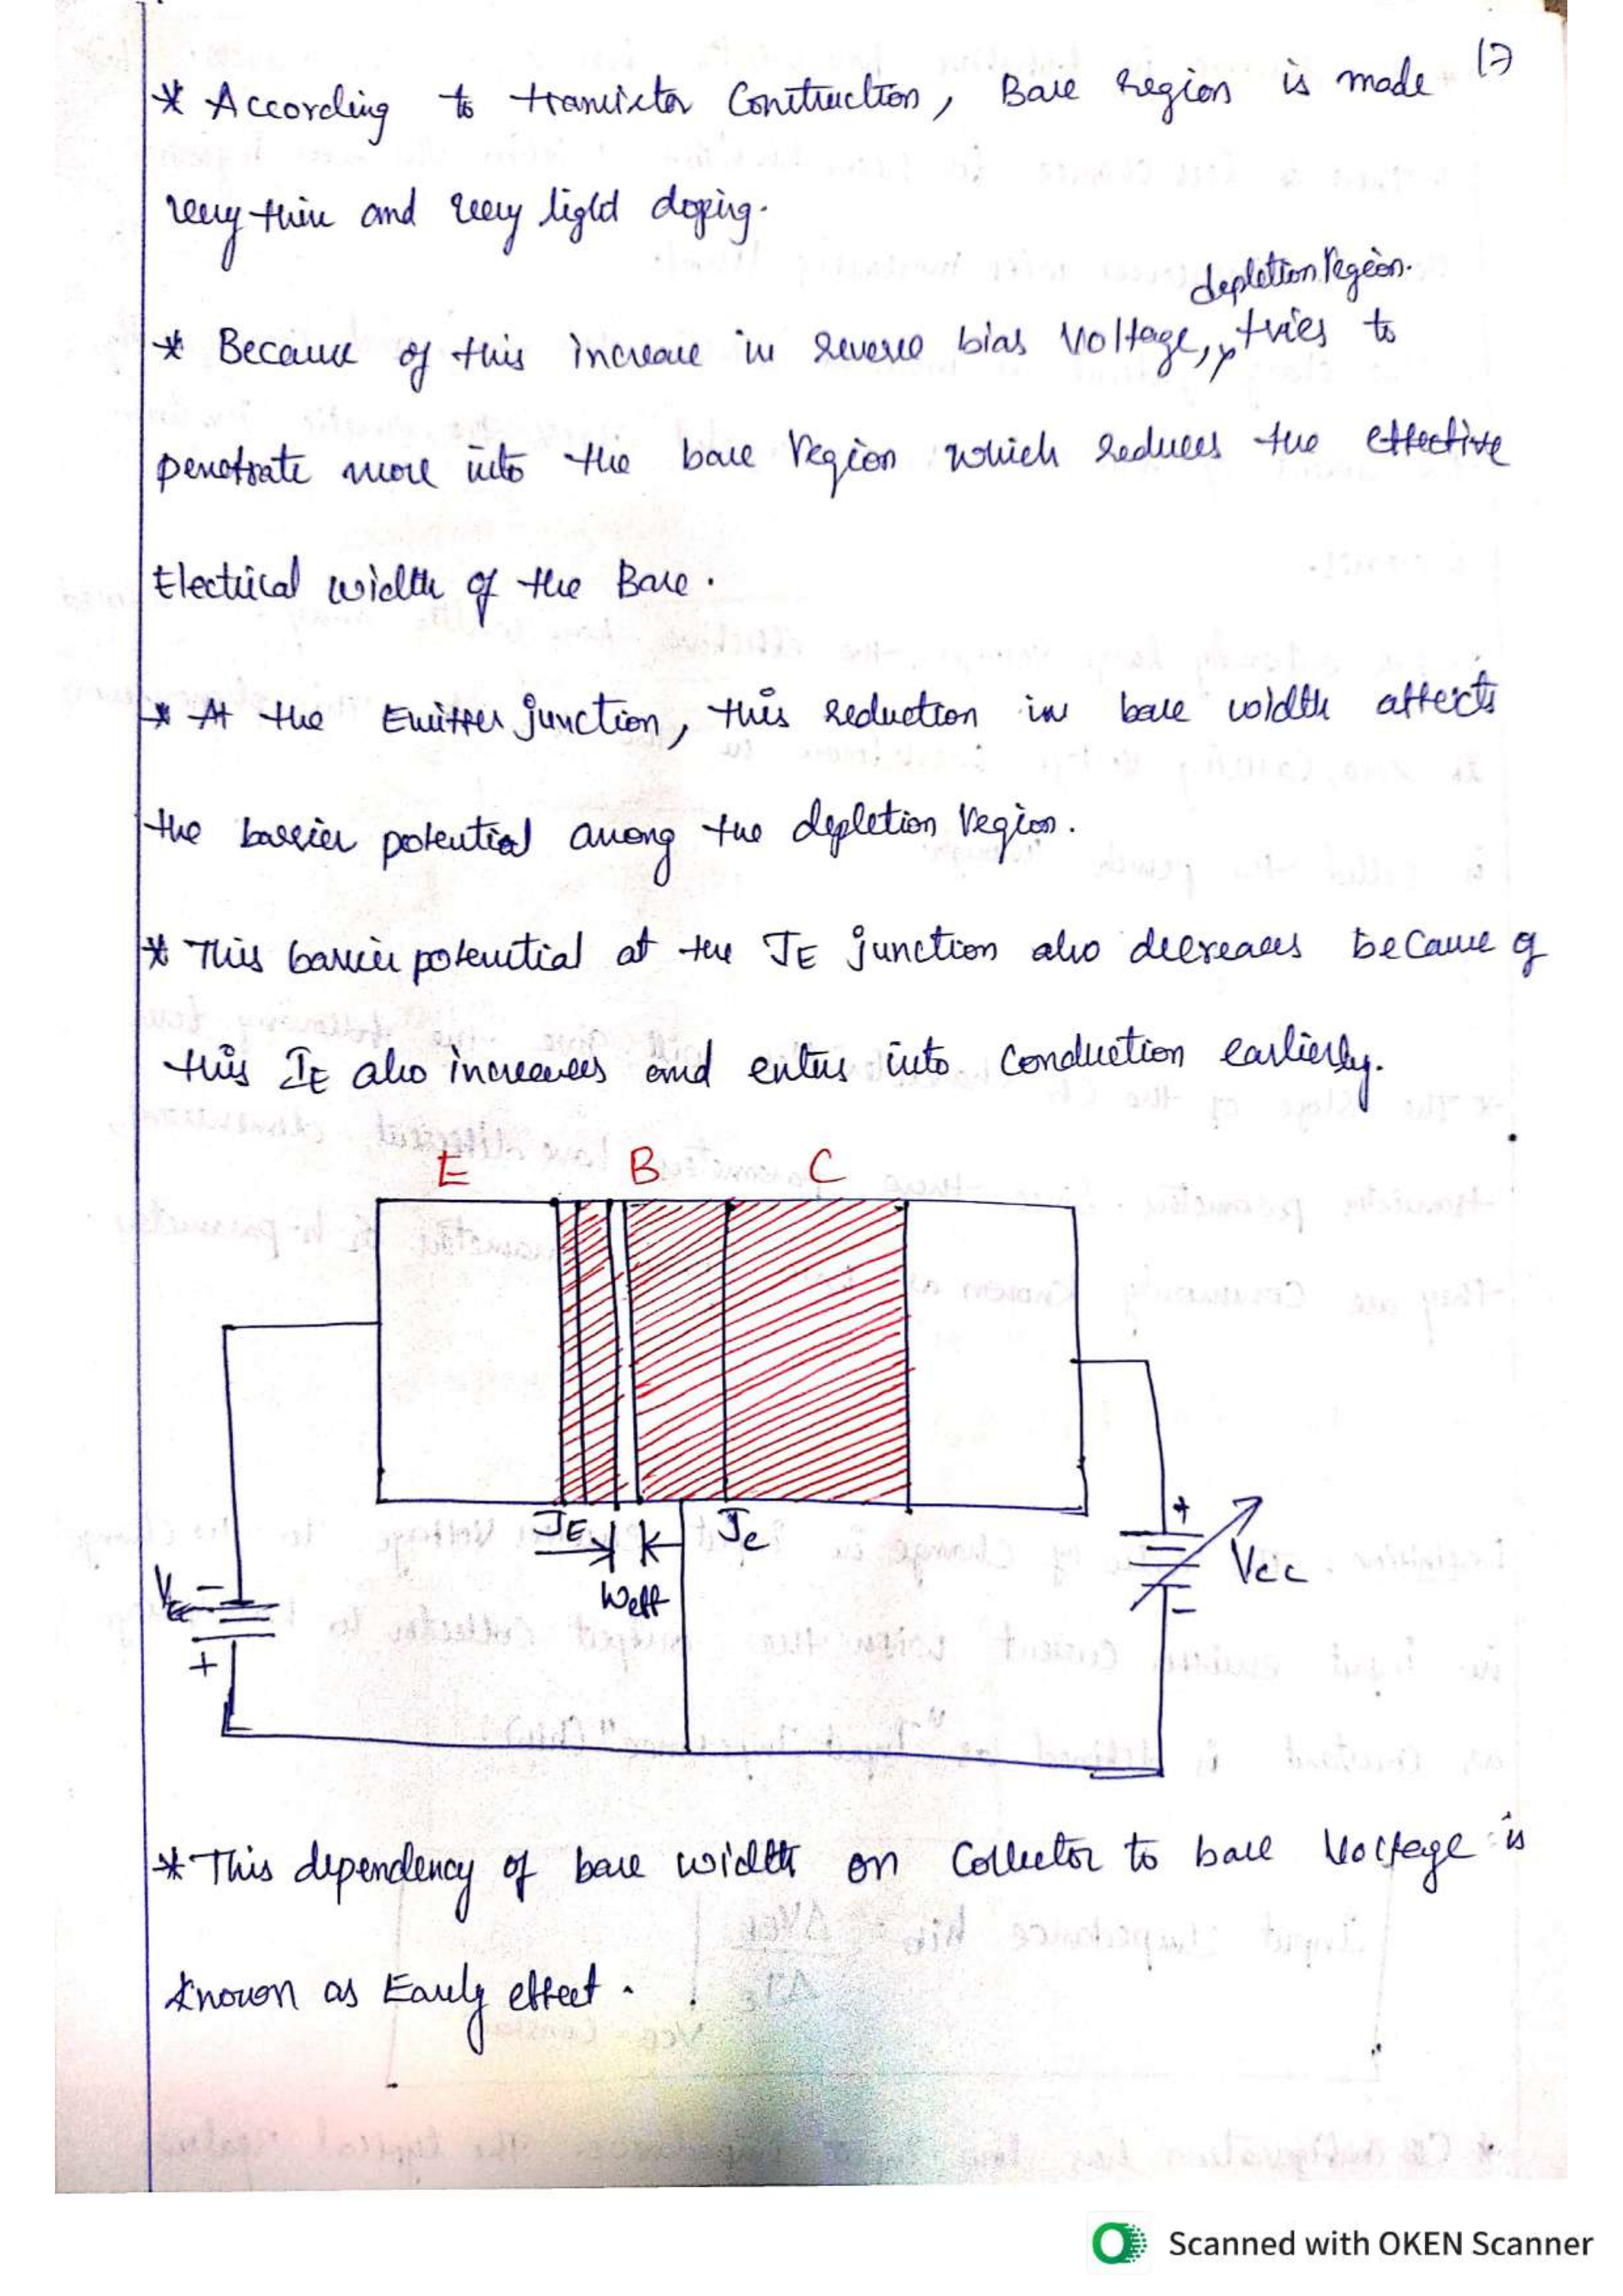 17
* According to transistor Construction, Base region is made
very thin and very light doping.
depletion region.
* Because of this increase in reverse bias Voltage, tries to
penetrate more into the base region which reduces the effective
Electrical width of the Base.
* At the Emitter junction, this reduction in base width affects
the barrier potential among the depletion region.
* This barrier potential at the JE junction also decreases because of
this IE also increases and enters into Conduction earlierly.
E B C
JE Jc
Weff
VEE
-
+
+
-
Vcc
* This dependency of base width on Collector to base Voltage is
known as Early effect.
Scanned with OKEN Scanner